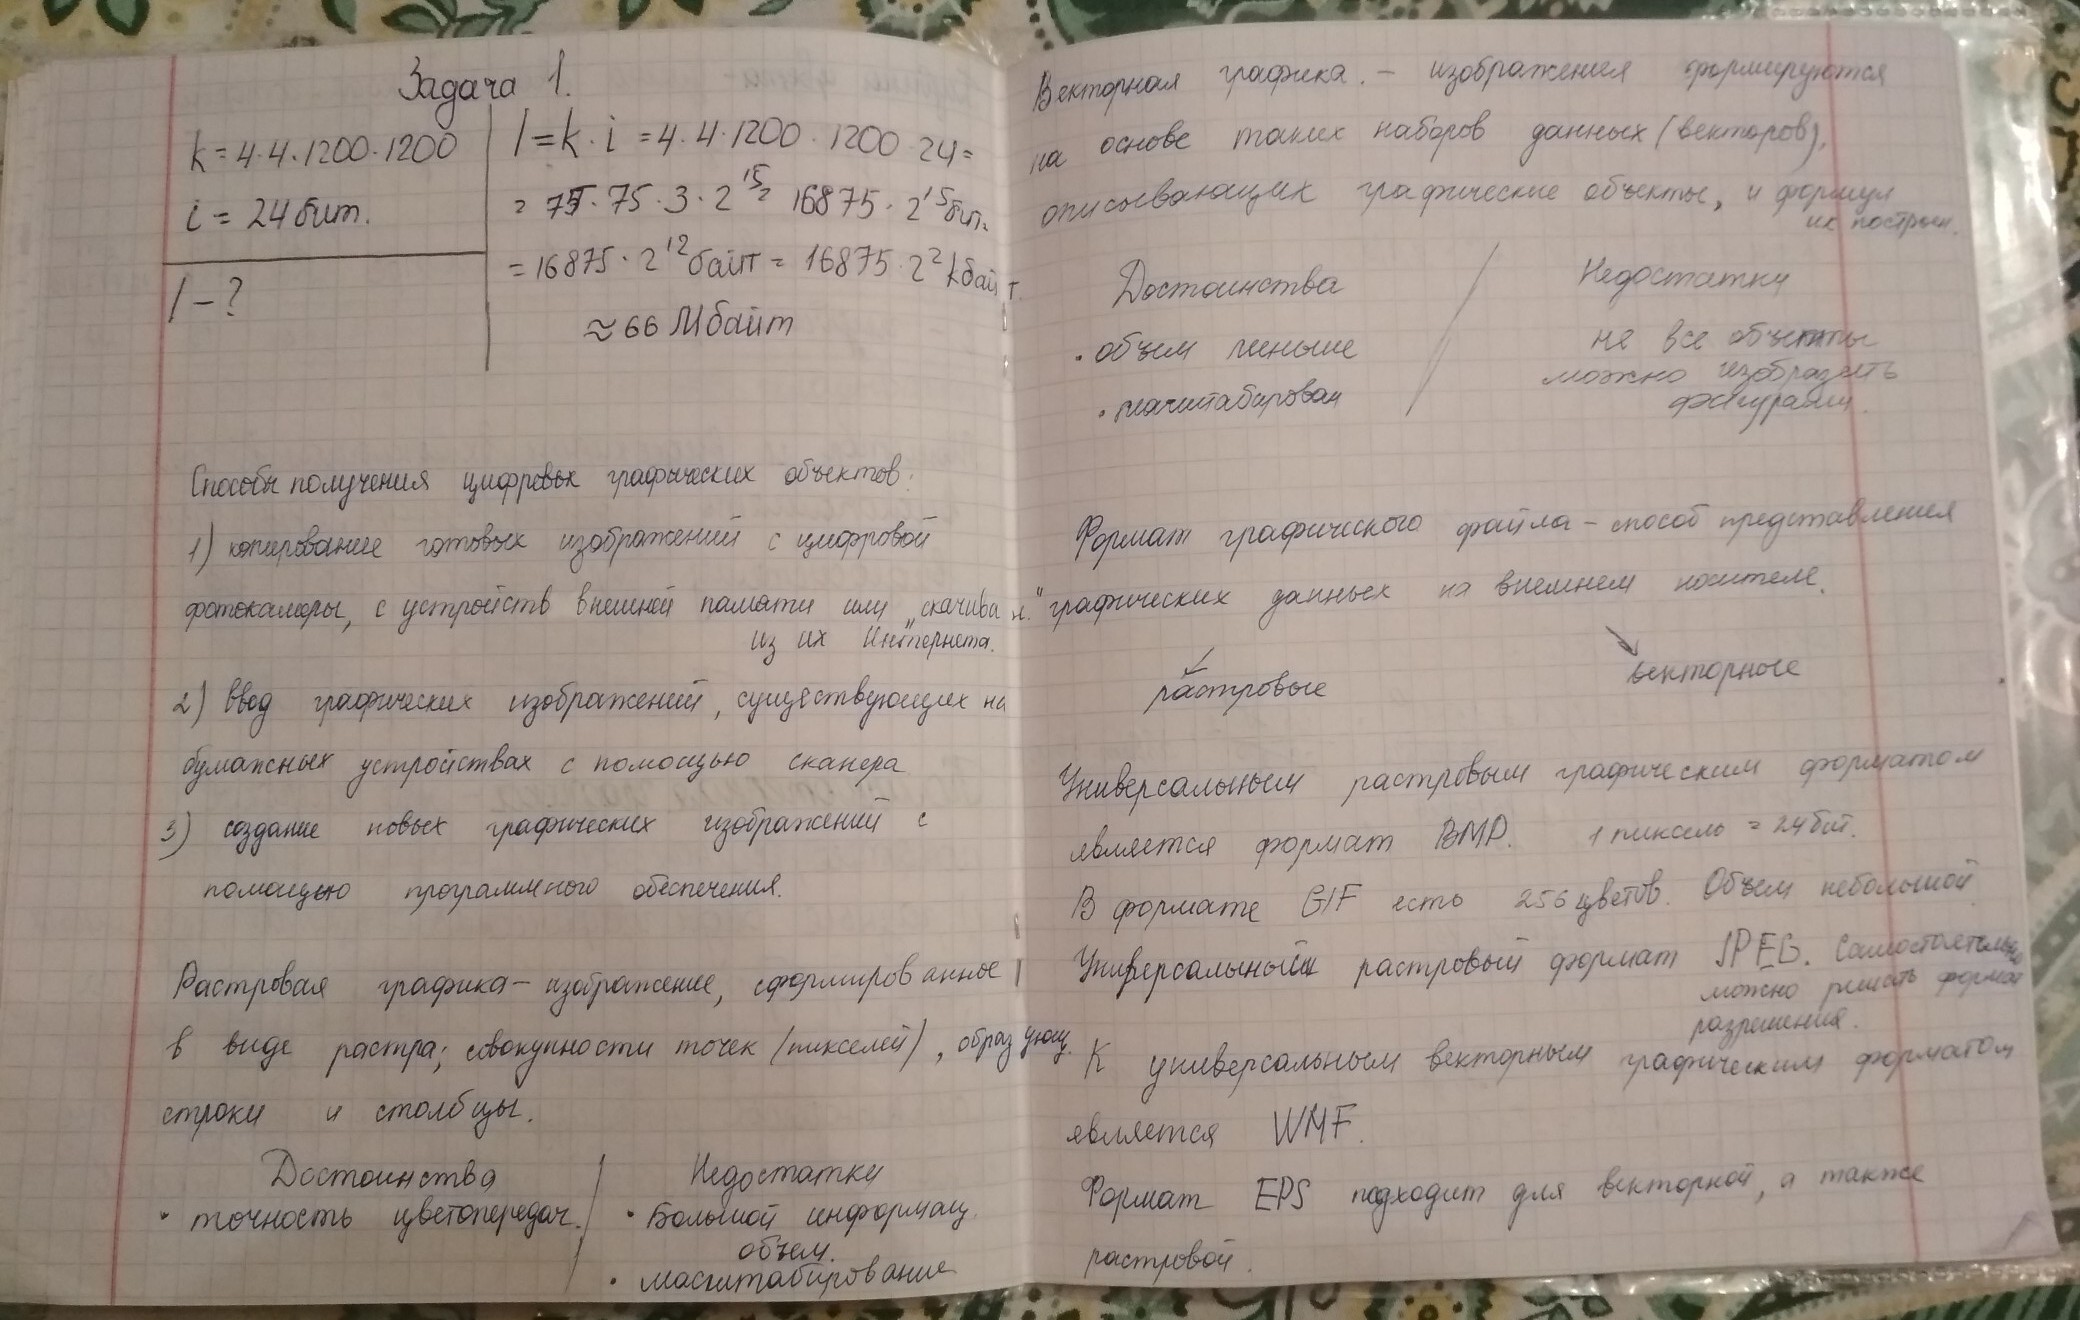 Задача 1.
k = 4·4·1200·1200
i = 24 бит.
I – ?
I = k·i = 4·4·1200·1200·24 =
= 75·75·3·2¹⁵ = 16875·2¹⁵ бит =
= 16875·2¹² байт = 16875·2² Кбайт.
≈ 66 Мбайт
Способы получения цифровых графических объектов:
1) копирование готовых изображений с цифровой
фотокамеры, с устройств внешней памяти или „скачиван."
из их Интернета.
2) Ввод графических изображений, существующих на
бумажных устройствах с помощью сканера
3) создание новых графических изображений с
помощью программного обеспечения.
Растровая графика – изображение, сформированное
в виде растра; совокупности точек (пикселей), образующ.
строки и столбцы.
Достоинства
• точность цветопередач.
Недостатки
• Большой информац.
объем.
• масштабирование
Векторная графика. – изображения формируются
на основе таких наборов данных (векторов),
описывающих графические объекты, и формул
их построен.
Достоинства
• объем меньше
• масштабирован
Недостатки
не все объекты
можно изобразить
фигурами.
Формат графического файла – способ представления
графических данных на внешнем носителе.
растровые
векторные
Универсальным растровым графическим форматом
является формат BMP. 1 пиксель = 24 бит.
В формате GIF есть 256 цветов. Объем небольшой
Универсальный растровый формат JPEG. Самостоятельно
можно решать формат
разрешения.
К универсальным векторным графическим форматом
является WMF.
Формат EPS подходит для векторной, а также
растровой.